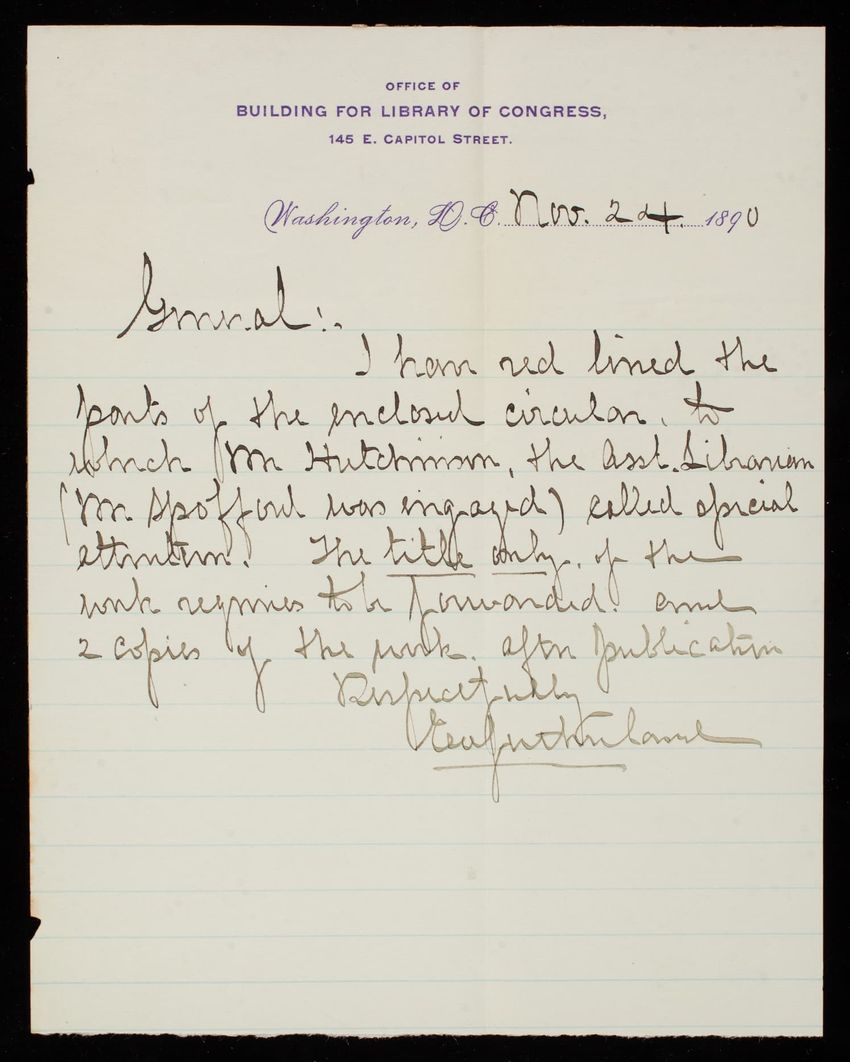 OFFICE OF
BUILDING FOR LIBRARY OF CONGRESS,
145 E. CAPITOL STREET.
Washington, D.C. Nov. 24. 1890
General:.
I have red lined the
parts of the enclosed circular, to
which Mr Hutchinson, the Asst. Librarian
(Mr. Spofford was engaged) called special
attention. The title only, of the
work requires to be forwarded. and
2 copies of the work. after publication
Respectfully